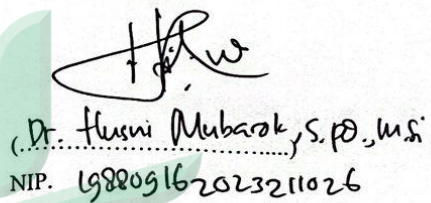 (Dr. Husni Mubarok, S.Pd., M.Si
NIP. 198809162023211026